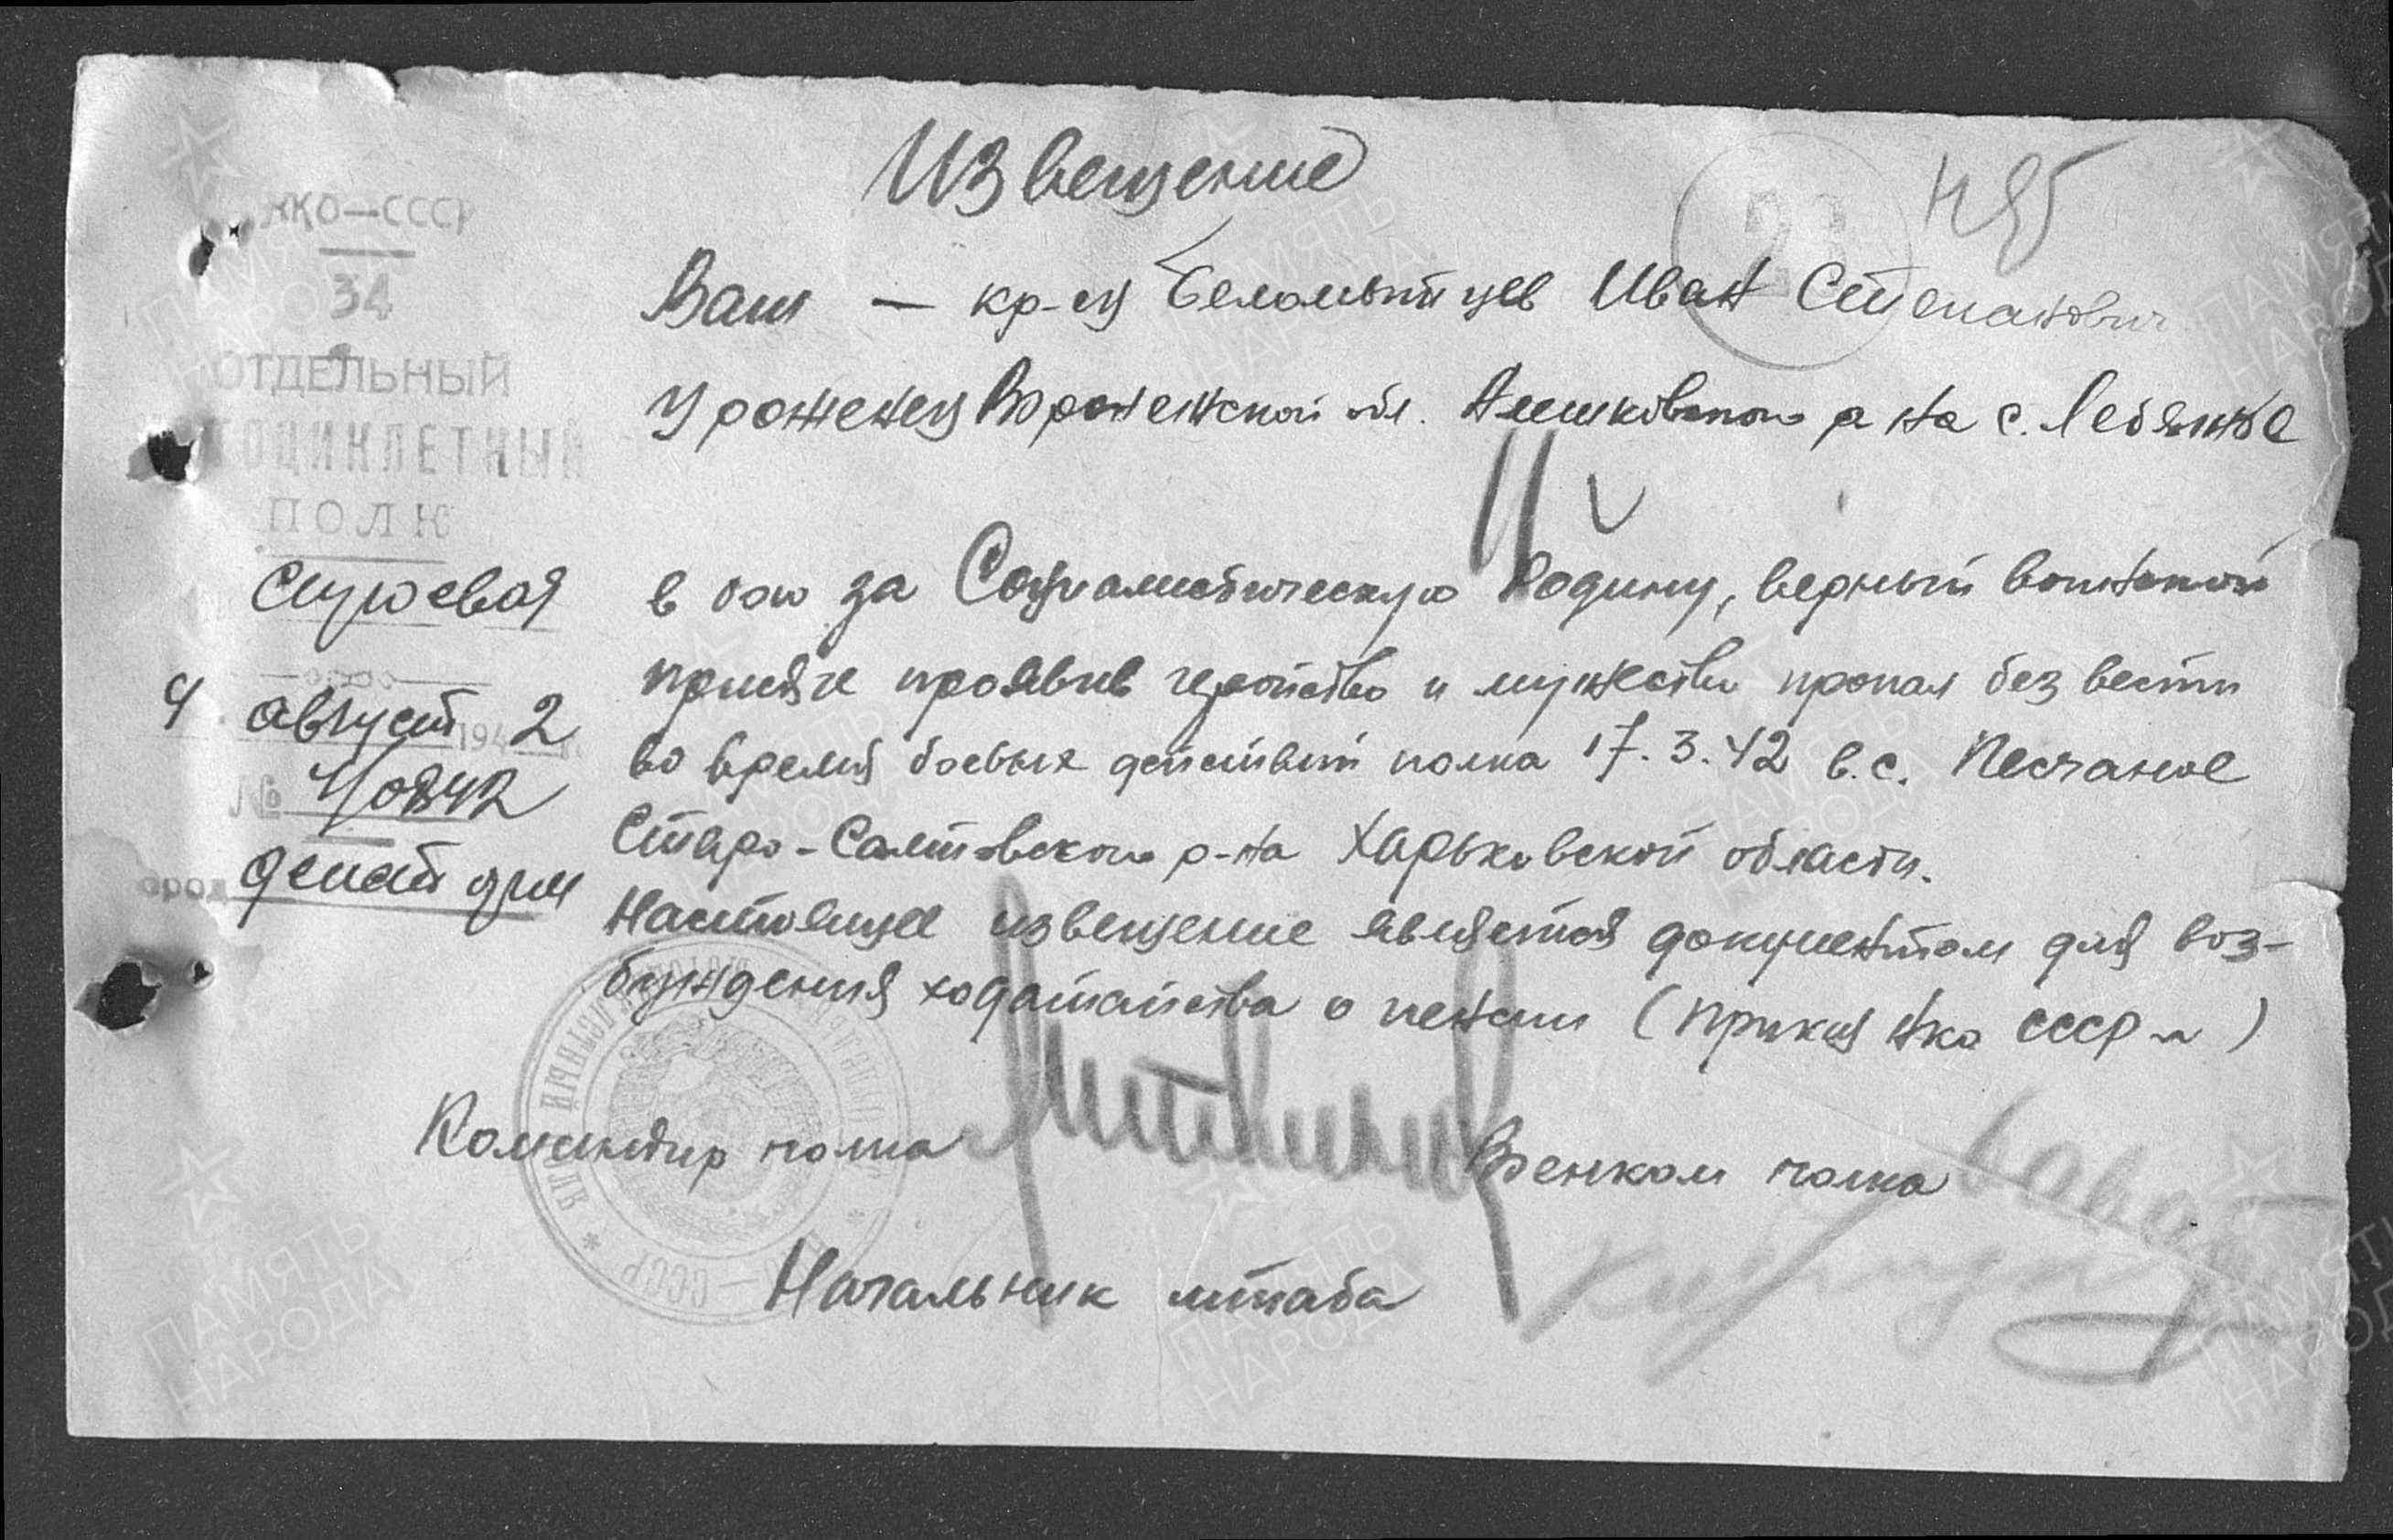 Извещение
Н85
НКО—СССР
34
ОТДЕЛЬНЫЙ
МОТОЦИКЛЕТНЫЙ
ПОЛК
Строевая
4 август 1942
№
Ваш — кр-ец Беломытцев Иван Степанович
Уроженец Воронежской обл. Алешковского р-на с. Лебяжье
в бою за Социалистическую Родину, верный воинской
присяге проявив геройство и мужество пропал без вести
во время боевых действий полка 17.3.42 в. с. Песчаное
Старо-Салтовского р-на Харьковской области.
Настоящее извещение является документом для воз-
буждения ходатайства о пенсии (Приказ НКО СССР №)
Командир полка Военком полка
Начальник штаба
ПАМЯТЬ
НАРОДА